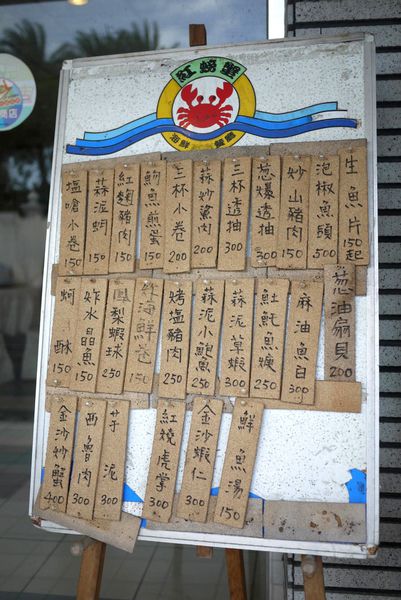 紅螃蟹
海鮮 餐廳
生魚片 150起
泡椒魚頭 500
妙山豬肉 150
葱爆透抽 300
三杯透抽 300
蒜妙鯊肉 200
三杯小卷 200
魩魚煎蛋 150
紅麴豬肉 150
蒜泥蚵 150
塩嗆小卷 150
葱油扇貝 200
麻油魚目 300
魠魚羹 250
蒜泥草蝦 300
蒜泥小鮑魚 250
烤塩豬肉 250
海鮮卷 150
鳳梨蝦球 250
炸水晶魚 150
蚵酥 150
鮮魚湯 150
金沙蝦仁 300
紅燒虎掌 300
芋泥 300
西魯肉 300
金沙妙蟹 400